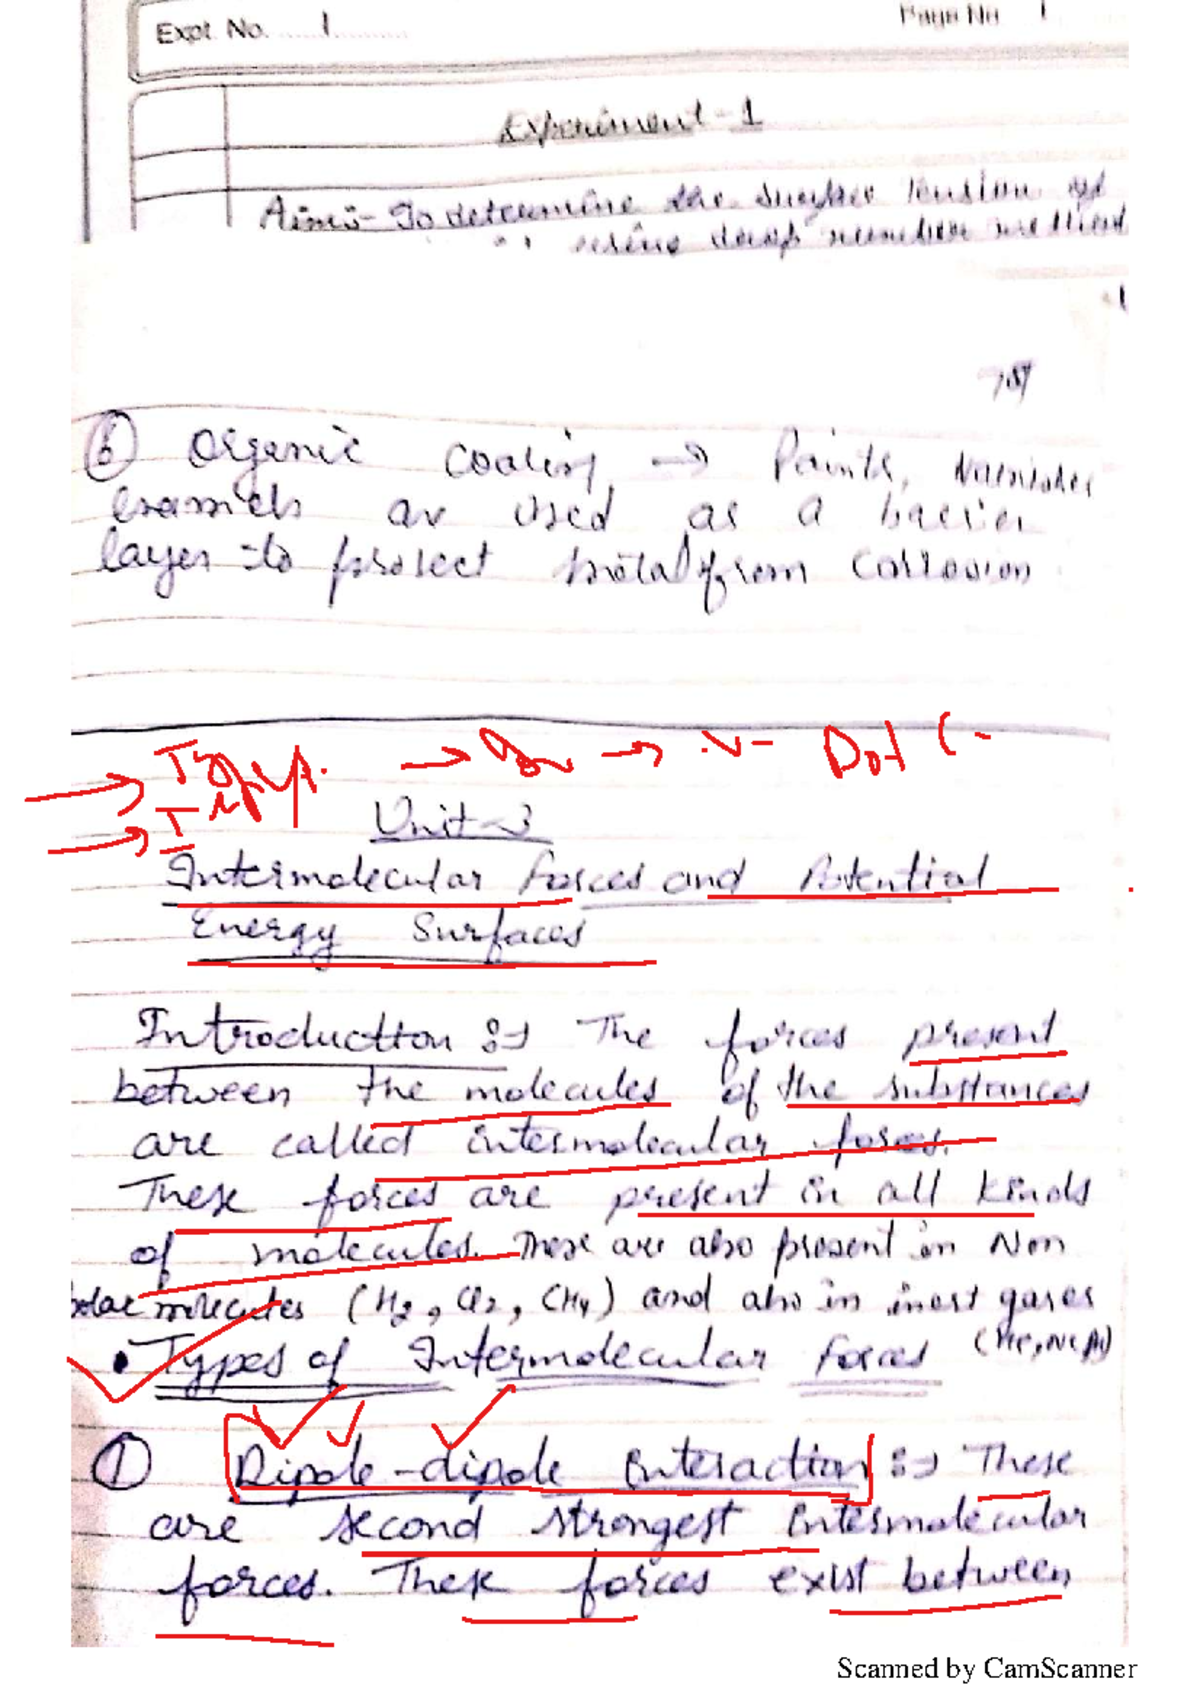 Expt. No. 1
Page No 1
Experiment-1
Aim:- To determine the surface tension of
using drop number method
⑥ Organic coating → Paints, varnishes
enamels are used as a barrier
layer to protect metal from corrosion
Unit-3
Intermolecular forces and Potential
Energy Surfaces
Introduction :→ The forces present
between the molecules of the substances
are called intermolecular forces.
These forces are present in all kinds
of molecules. These are also present in Non
polar molecules (H2, Cl2, CH4) and also in inert gases
(He, Ne, Ar)
• Types of Intermolecular forces
① Dipole-dipole interaction :→ These
are second strongest intermolecular
forces. These forces exist between
Scanned by CamScanner